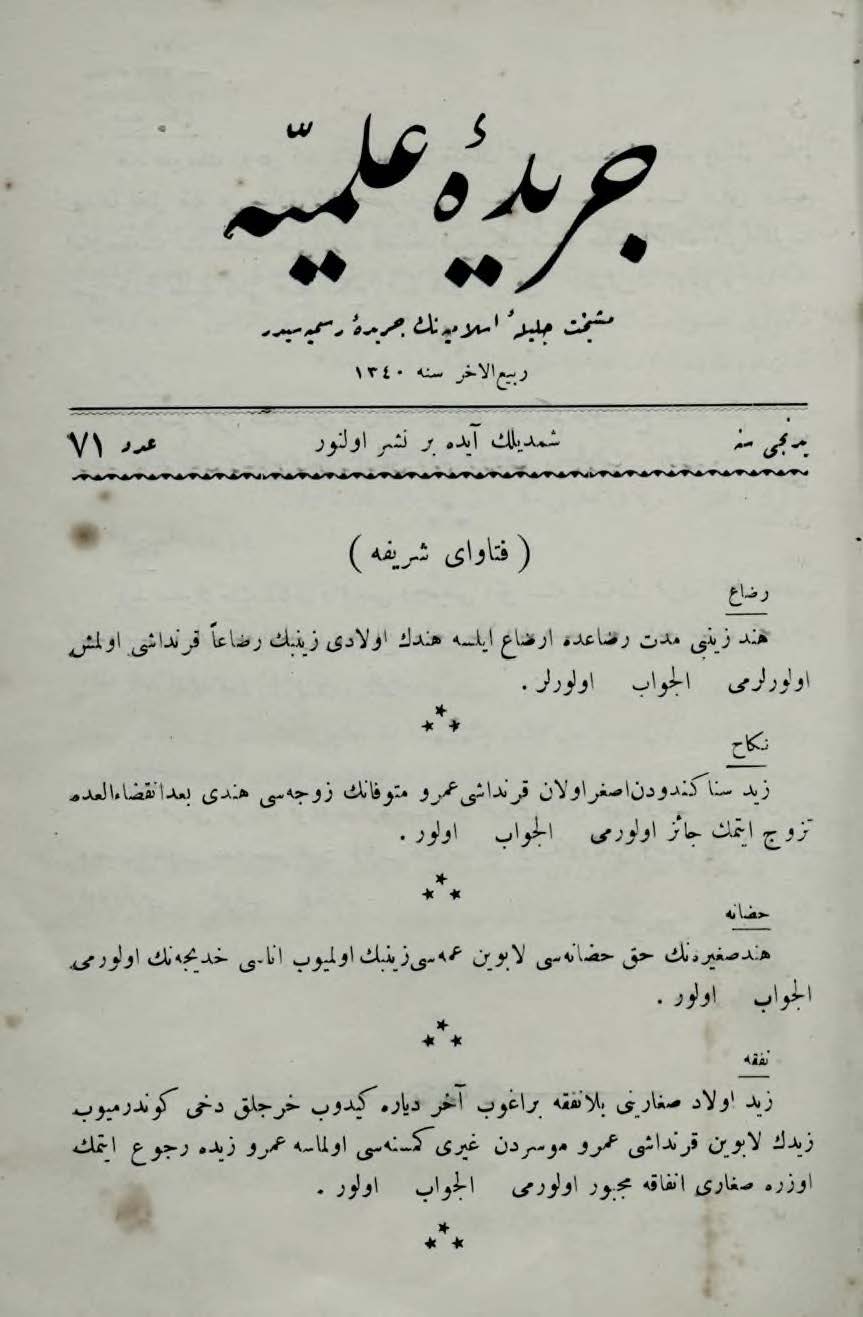 جريدۀ علميّه
مشيخت جليلۀ اسلاميه‌نك جريدۀ رسميه‌سيدر
ربيع‌الاخر سنه ١٣٤٠
يدنجى سنه
شمديلك آيده بر نشر اولنور
عدد ٧١
( فتاواى شريفه )
رضاع
هند زينبى مدت رضاعده ارضاع ايلسه هندك اولادى زينبك رضاعاً قرنداشى اولمش
اولورلرمى الجواب اولورلر .
نكاح
زيد سناً كندودن اصغر اولان قرنداشى عمرو متوفانك زوجه‌سى هندى بعد انقضاءالعده
تزوج ايتمك جائز اولورمى الجواب اولور .
حضانه
هند صغيره‌نك حق حضانه‌سى لابوين عمه‌سى زينبك اولميوب اناسى خديجه‌نك اولورمى
الجواب اولور .
نفقه
زيد اولاد صغارينى بلانفقه براغوب آخر دياره كيدوب خرجلق دخى كوندرميوب
زيدك لابوين قرنداشى عمرو موسردن غيرى كمسنه‌سى اولماسه عمرو زيده رجوع ايتمك
اوزره صغارى انفاقه مجبور اولورمى الجواب اولور .